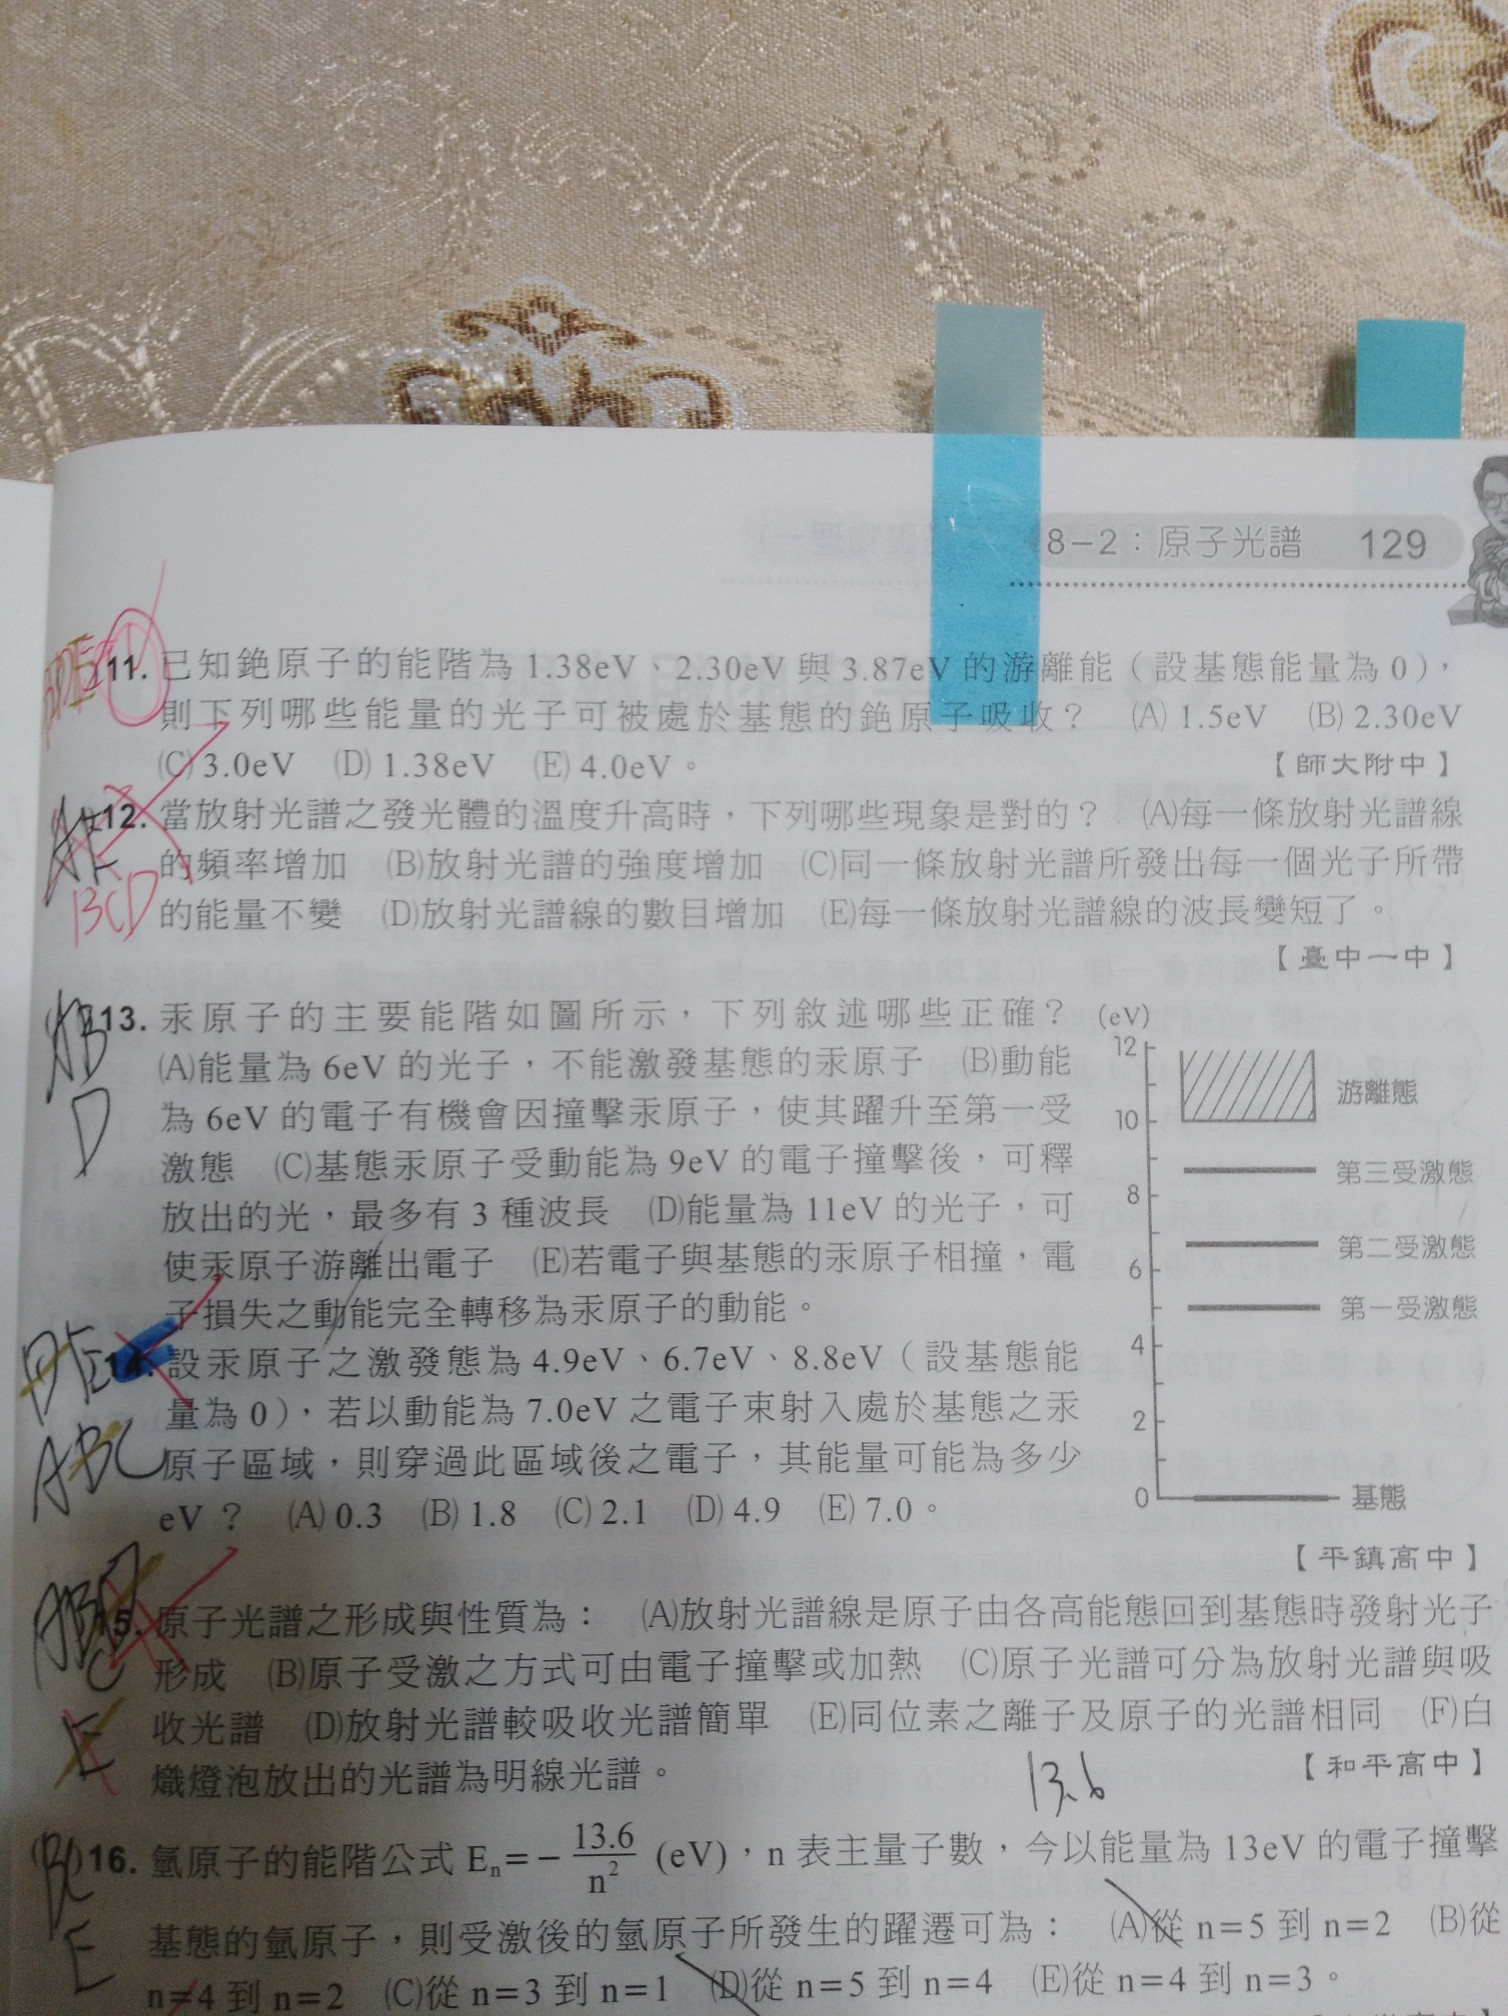 8-2：原子光譜 129
BDE 11. 已知銫原子的能階為 1.38eV、2.30eV 與 3.87eV 的游離能（設基態能量為 0），
則下列哪些能量的光子可被處於基態的銫原子吸收？ (A) 1.5eV (B) 2.30eV
(C) 3.0eV (D) 1.38eV (E) 4.0eV。 【師大附中】
AE 12. 當放射光譜之發光體的溫度升高時，下列哪些現象是對的？ (A)每一條放射光譜線
的頻率增加 (B)放射光譜的強度增加 (C)同一條放射光譜所發出每一個光子所帶
BCD 的能量不變 (D)放射光譜線的數目增加 (E)每一條放射光譜線的波長變短了。
【臺中一中】
AB 13. 汞原子的主要能階如圖所示，下列敘述哪些正確？
D (A)能量為 6eV 的光子，不能激發基態的汞原子 (B)動能
為 6eV 的電子有機會因撞擊汞原子，使其躍升至第一受
激態 (C)基態汞原子受動能為 9eV 的電子撞擊後，可釋
放出的光，最多有 3 種波長 (D)能量為 11eV 的光子，可
使汞原子游離出電子 (E)若電子與基態的汞原子相撞，電
子損失之動能完全轉移為汞原子的動能。
(eV)
12
游離態
10
第三受激態
8
第二受激態
6
第一受激態
4
2
0 基態
DE 14. 設汞原子之激發態為 4.9eV、6.7eV、8.8eV（設基態能
量為 0），若以動能為 7.0eV 之電子束射入處於基態之汞
ABC 原子區域，則穿過此區域後之電子，其能量可能為多少
eV？ (A) 0.3 (B) 1.8 (C) 2.1 (D) 4.9 (E) 7.0。
【平鎮高中】
15. 原子光譜之形成與性質為： (A)放射光譜線是原子由各高能態回到基態時發射光子
C 形成 (B)原子受激之方式可由電子撞擊或加熱 (C)原子光譜可分為放射光譜與吸
E 收光譜 (D)放射光譜較吸收光譜簡單 (E)同位素之離子及原子的光譜相同 (F)白
熾燈泡放出的光譜為明線光譜。 【和平高中】
13.6
BC 16. 氫原子的能階公式 Eₙ=－13.6/n² (eV)，n 表主量子數，今以能量為 13eV 的電子撞擊
E 基態的氫原子，則受激後的氫原子所發生的躍遷可為： (A)從 n=5 到 n=2 (B)從
n=4 到 n=2 (C)從 n=3 到 n=1 (D)從 n=5 到 n=4 (E)從 n=4 到 n=3。